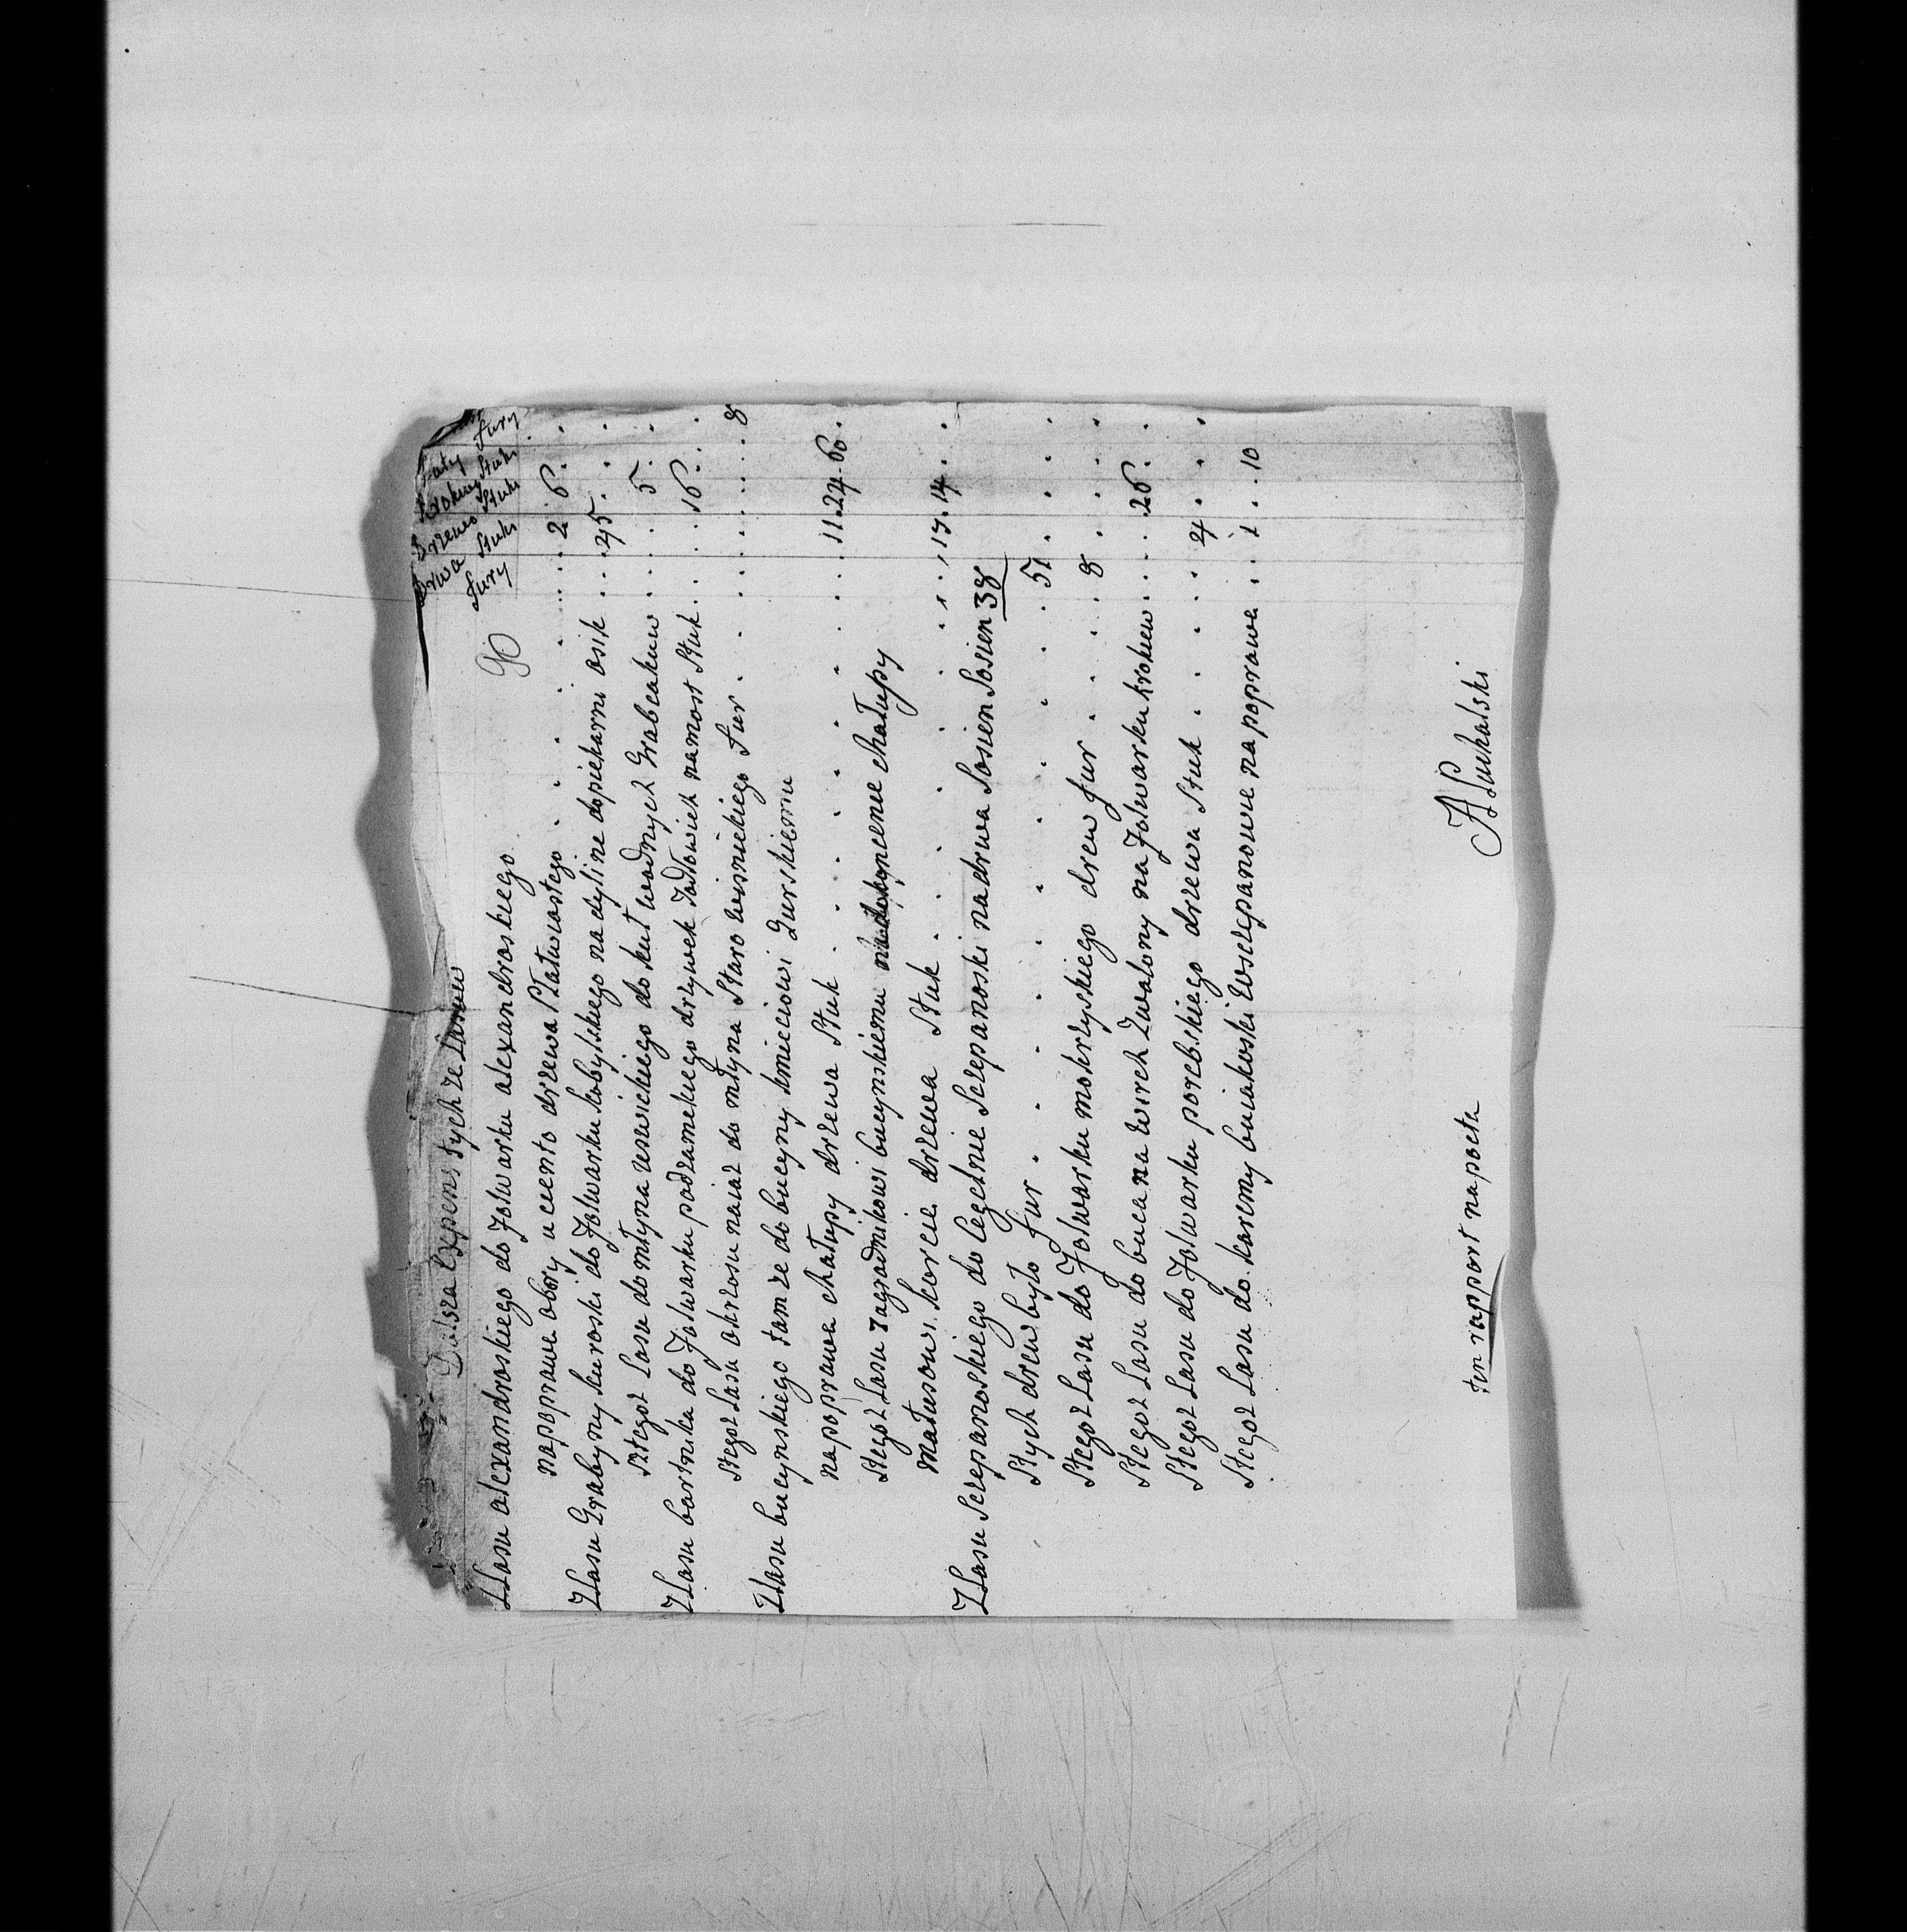 Dalsza Expens tych ze Lasuw
Drwa Drzewo Krokwy Łaty
Fury Stuki Stuki Stuki Fury
ZLasu alexandroskiego do Folwarku alexandroskiego
napoprawe obory ucento drzewa Płatwiastego . . . . . 2 6 . .
ZLasu Grabyny kuroski do Folwarku kobylskiego na dyline dopiekarni osik . . 45 . . .
Stegoz Lasu domłyna uswickiego do kuł wodnych Grabczakuw . . . 5 . .
ZLasu bartnika do Folwarku podzamckiego drzywek Jodłowich namost Stuk . . . 16 . . .
Stegoz Lasu okrzosu naiaz do młyna Staro wisnickiego Fur . . . . . . . 8
ZLasu bucynskiego tamze do bucyny kmieciowi Gurskiemu
napoprawe chałupy drzewa Stuk . . . . . . . . 11. 24. 60 .
Stegoz Lasu zagrodnikowi bucynskiemu chałupy
Matusowi korcie drzewa Stuk . . . . . . 13. 14. .
ZLasu Sczepanoskiego do Cegelnie Sczepanoski nadrwa Sosien Sosien 38
Stych drew było Fur . . . . . . . . 51 . . . .
Stegoz Lasu do Folwarku mokrzyskiego drew Fur . . . . 8 . . . .
Stegoz Lasu do buca na wirch Zwalony na Folwarku krokiew . . . 26 . .
Stegoz Lasu do Folwarku porebskiego drzewa Stuk . . . . . 4 . . .
Stegoz Lasu do karcmy buiakoski Wsczepanowie napoprawe . . 1 . . 10
ten rapport napocta